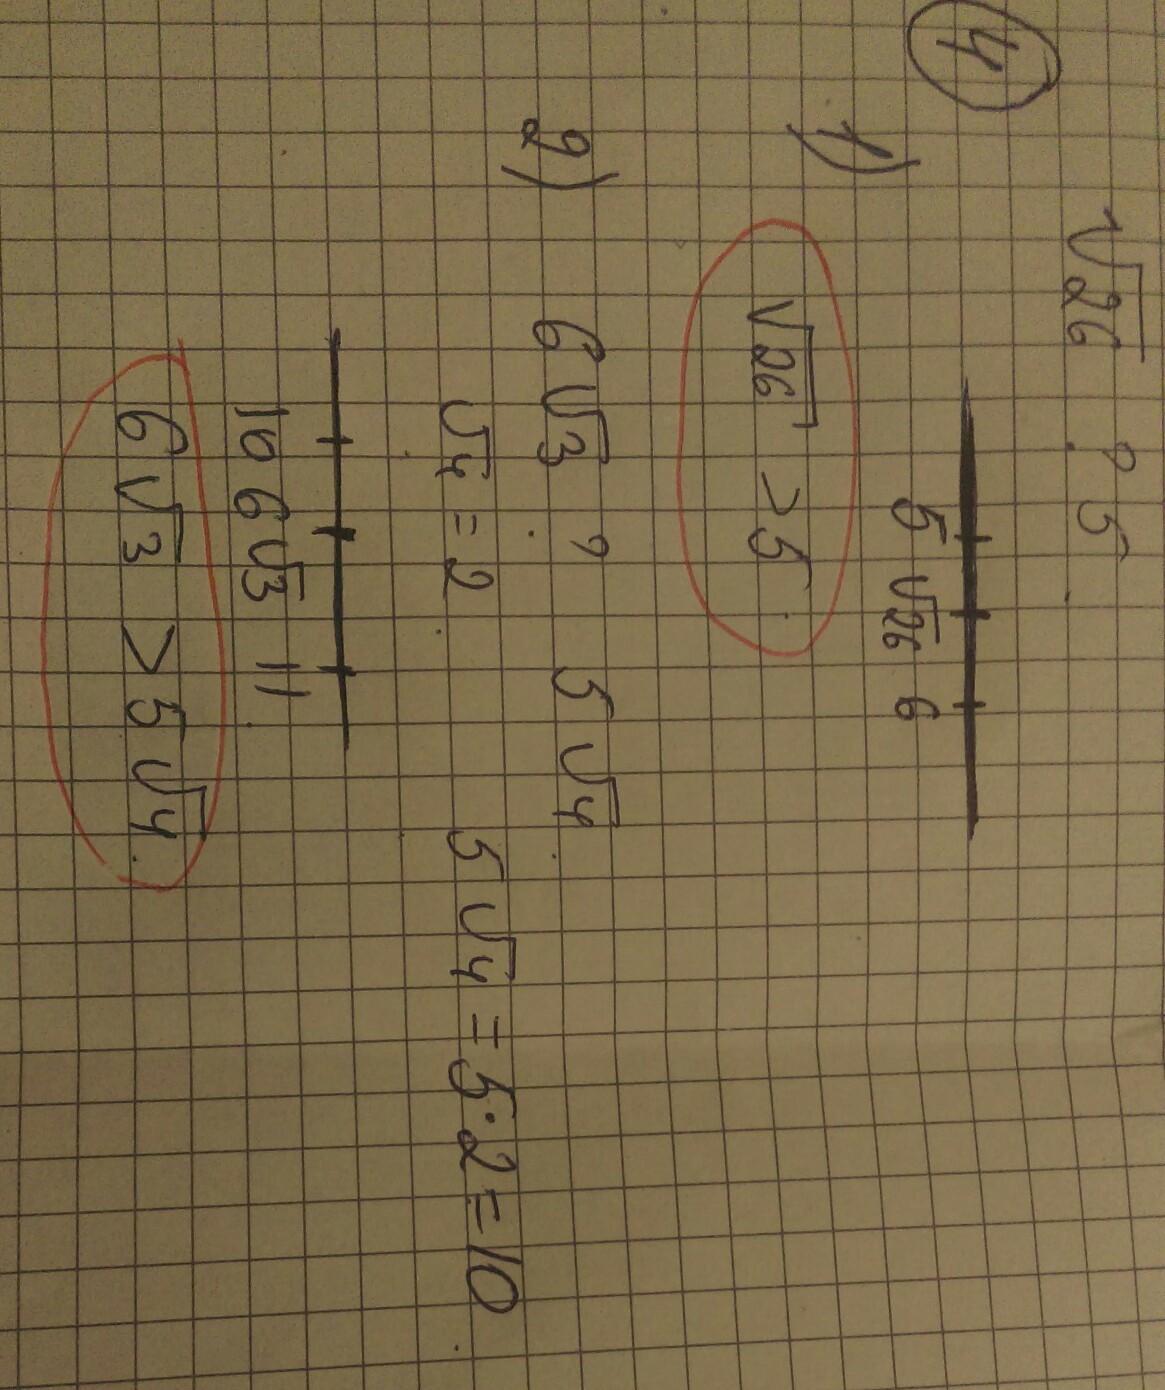 ④
1) √26 ? 5
5 √26 6
√26 > 5.
2) 6√3 ? 5√4
√4 = 2 5√4 = 5·2 = 10
10 6√3 11
6√3 > 5√4.